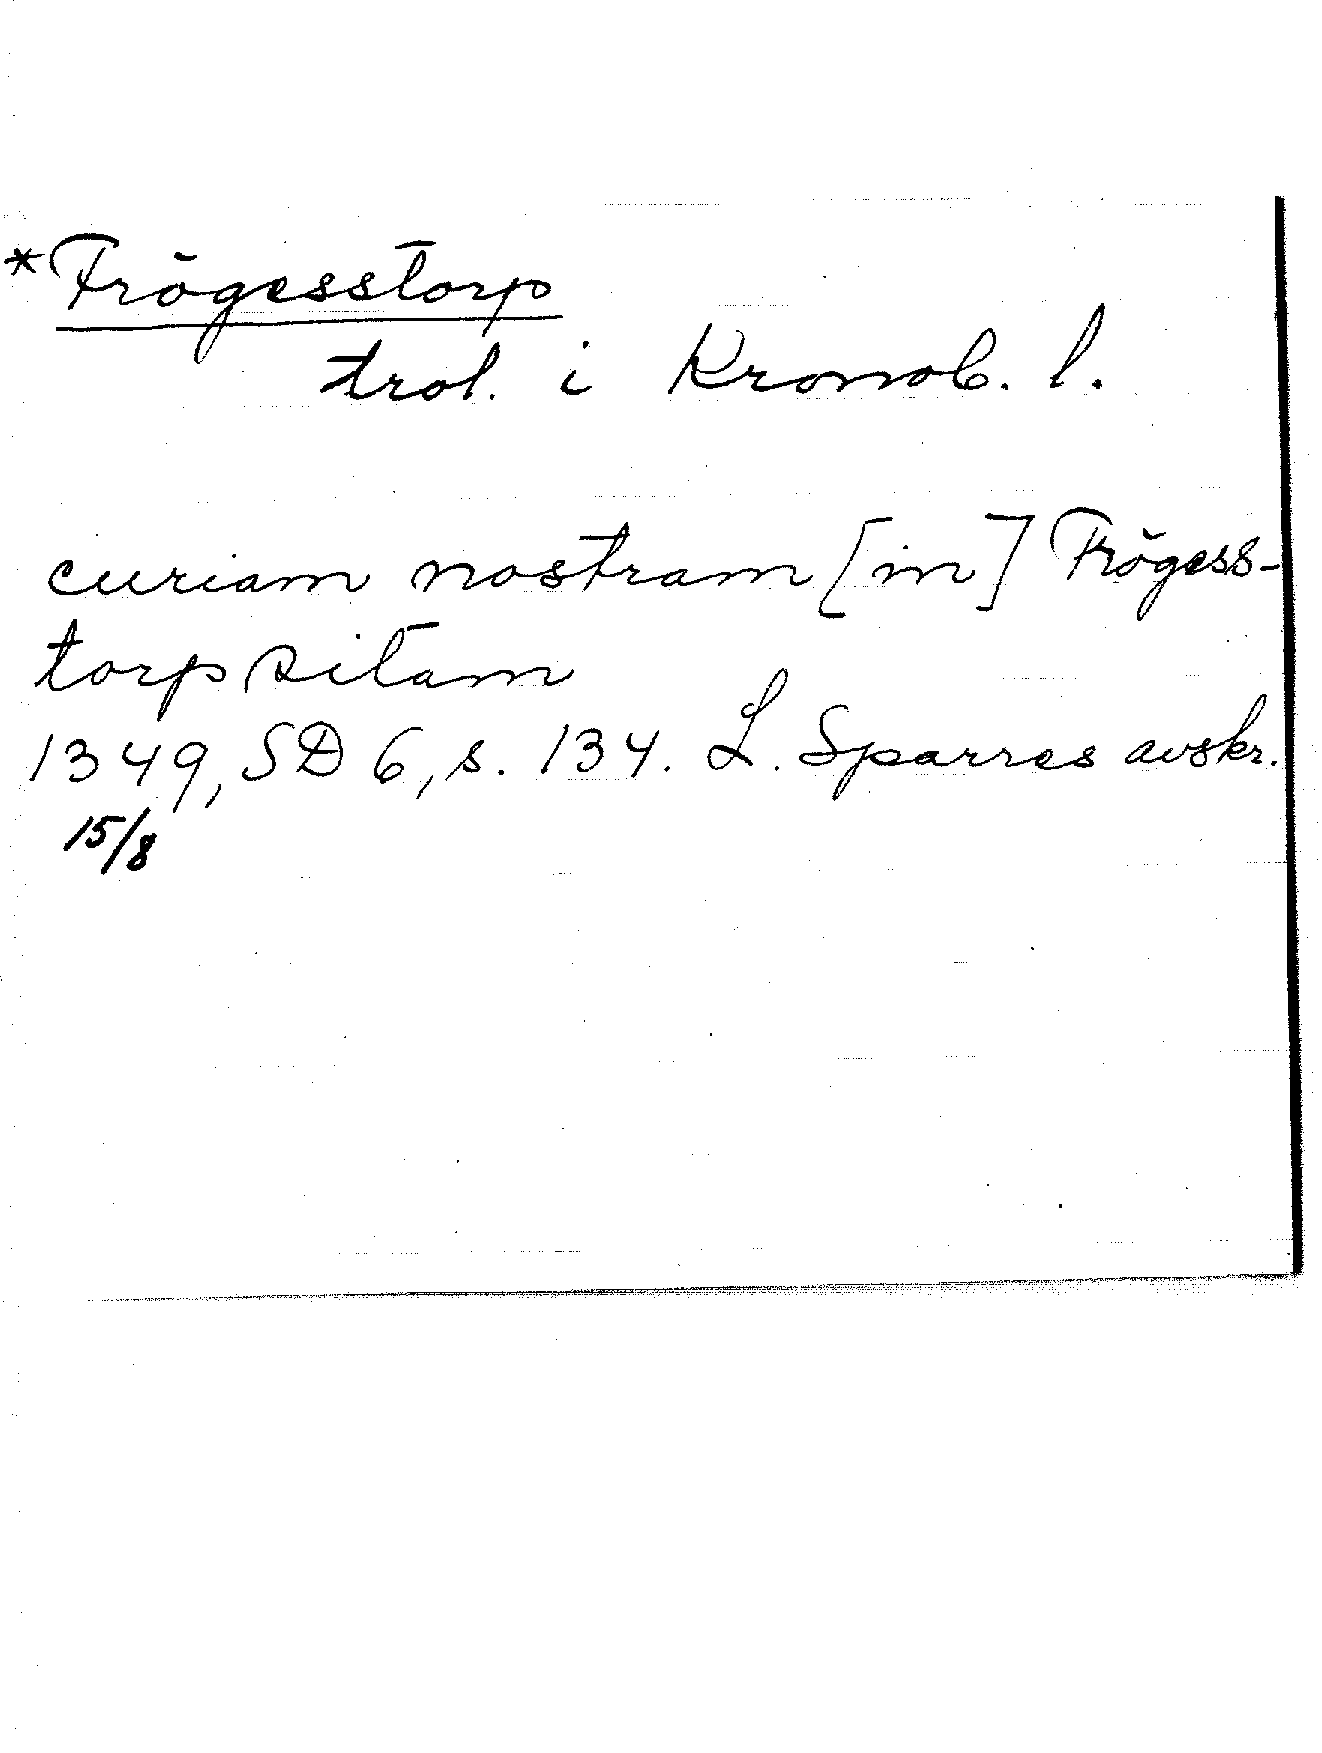 *Frögesstorp
trol. i Kronob. l.
curiam nostram [in] Frögess-
torp sitam
1349, SD 6, s. 134. L. Sparres avskr.
15/8